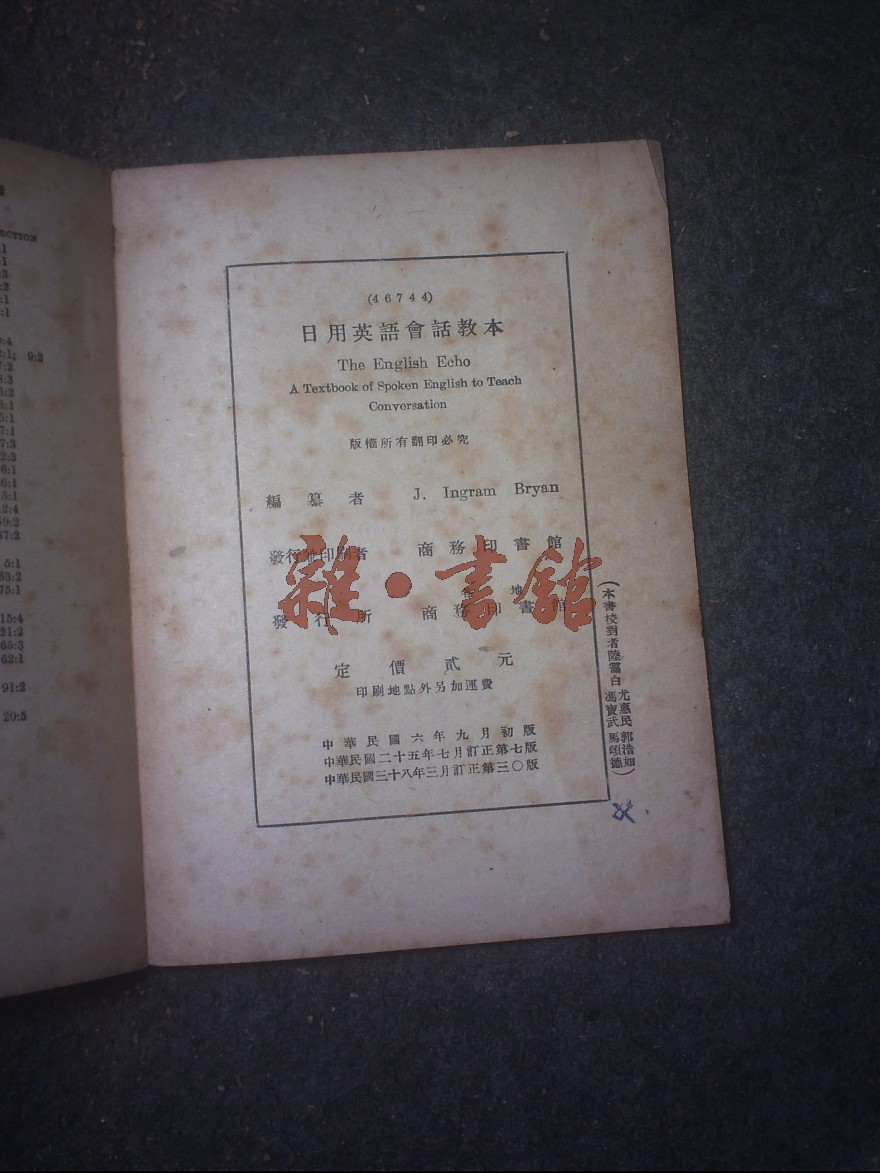 ECTION
:1
:1
:3
:2
:1
:1
:4
2:1; 9:2
7:2
8:3
5:2
6:1
5:1
7:1
7:3
2:3
6:1
6:1
5:1
2:4
59:2
67:2
5:1
63:2
75:1
15:4
21:2
65:3
62:1
91:2
20:5
(46744)
日用英語會話教本
The English Echo
A Textbook of Spoken English to Teach
Conversation
版權所有翻印必究
編纂者 J. Ingram Bryan
發行兼印刷者 商務印書館
各地
發行所 商務印書館
雜·書館
定價貳元
印刷地點外另加運費
中華民國六年九月初版
中華民國二十五年七月訂正第七版
中華民國三十八年三月訂正第三〇版
(本書校對者陸 白 尤惠民 郭浩如
馮寶武 馬頌德)